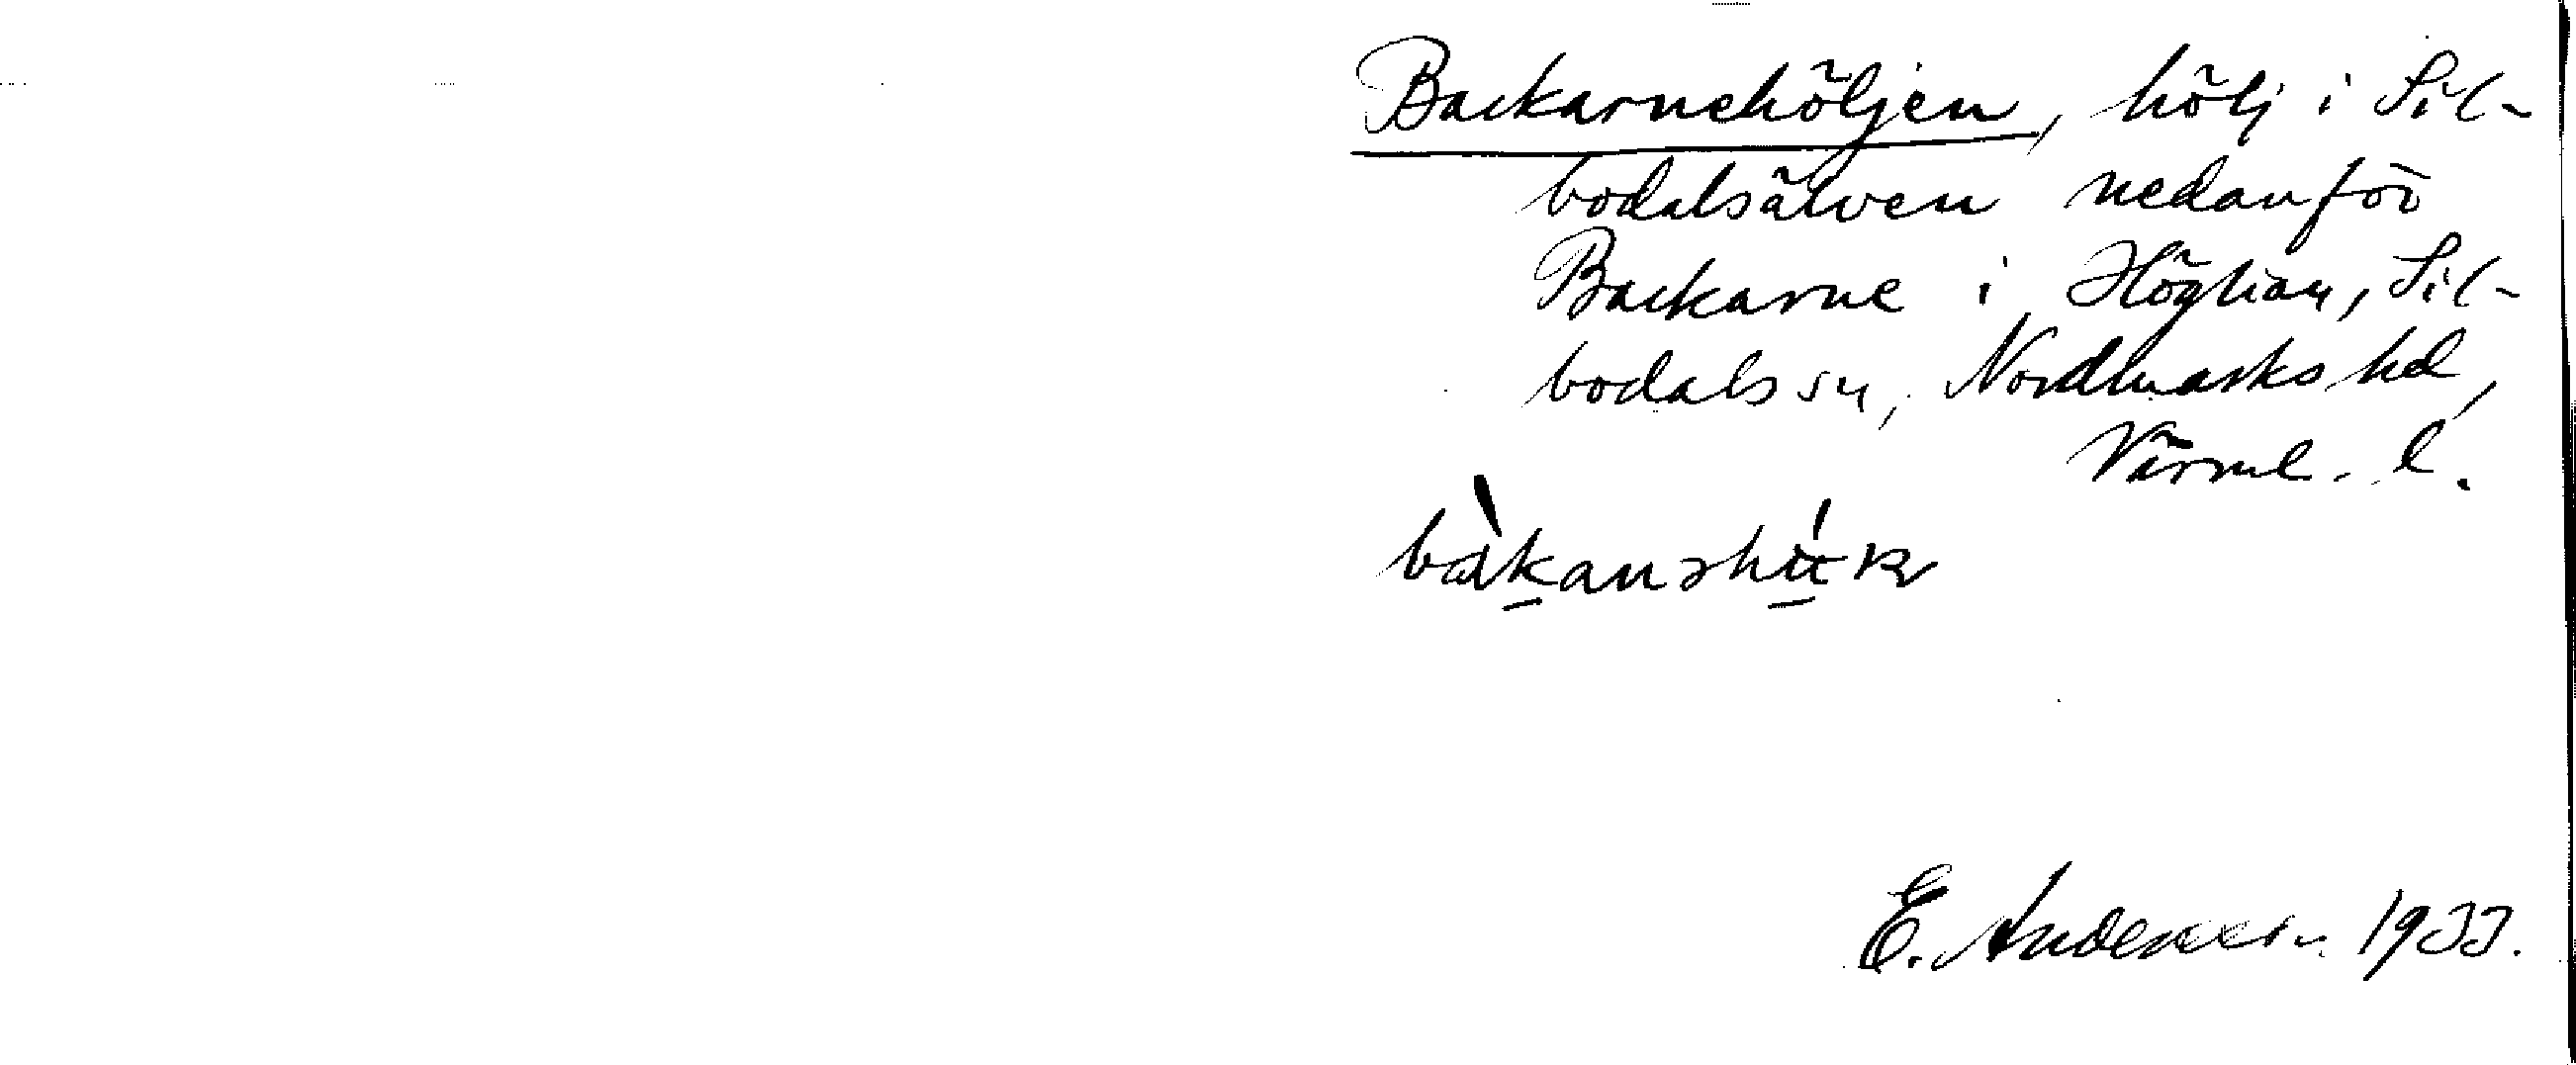 Backarnehöljen, hölj i Sil-
bodalsälven nedanför
Backarne i Höglian, Sil-
bodals sn, Nordmarks hd,
Värml. l.
E. Andersson 1933.